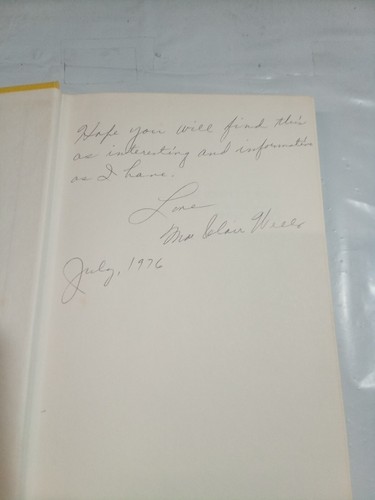 Hope you will find this
as interesting and informative
as I have.
Love
Clair Wells
July, 1976